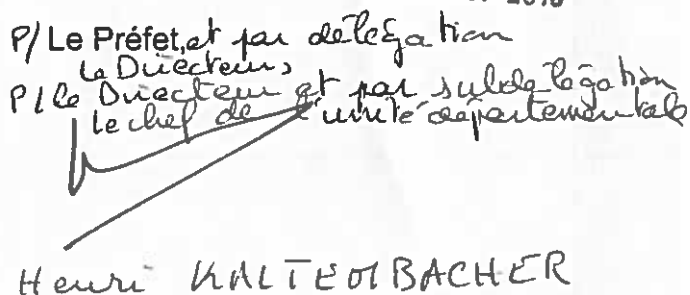 P/ Le Préfet, et par délégation
Le Directeur,
P/ le Directeur et par subdélégation
le chef de l'unité départementale
Henri KALTEMBACHER